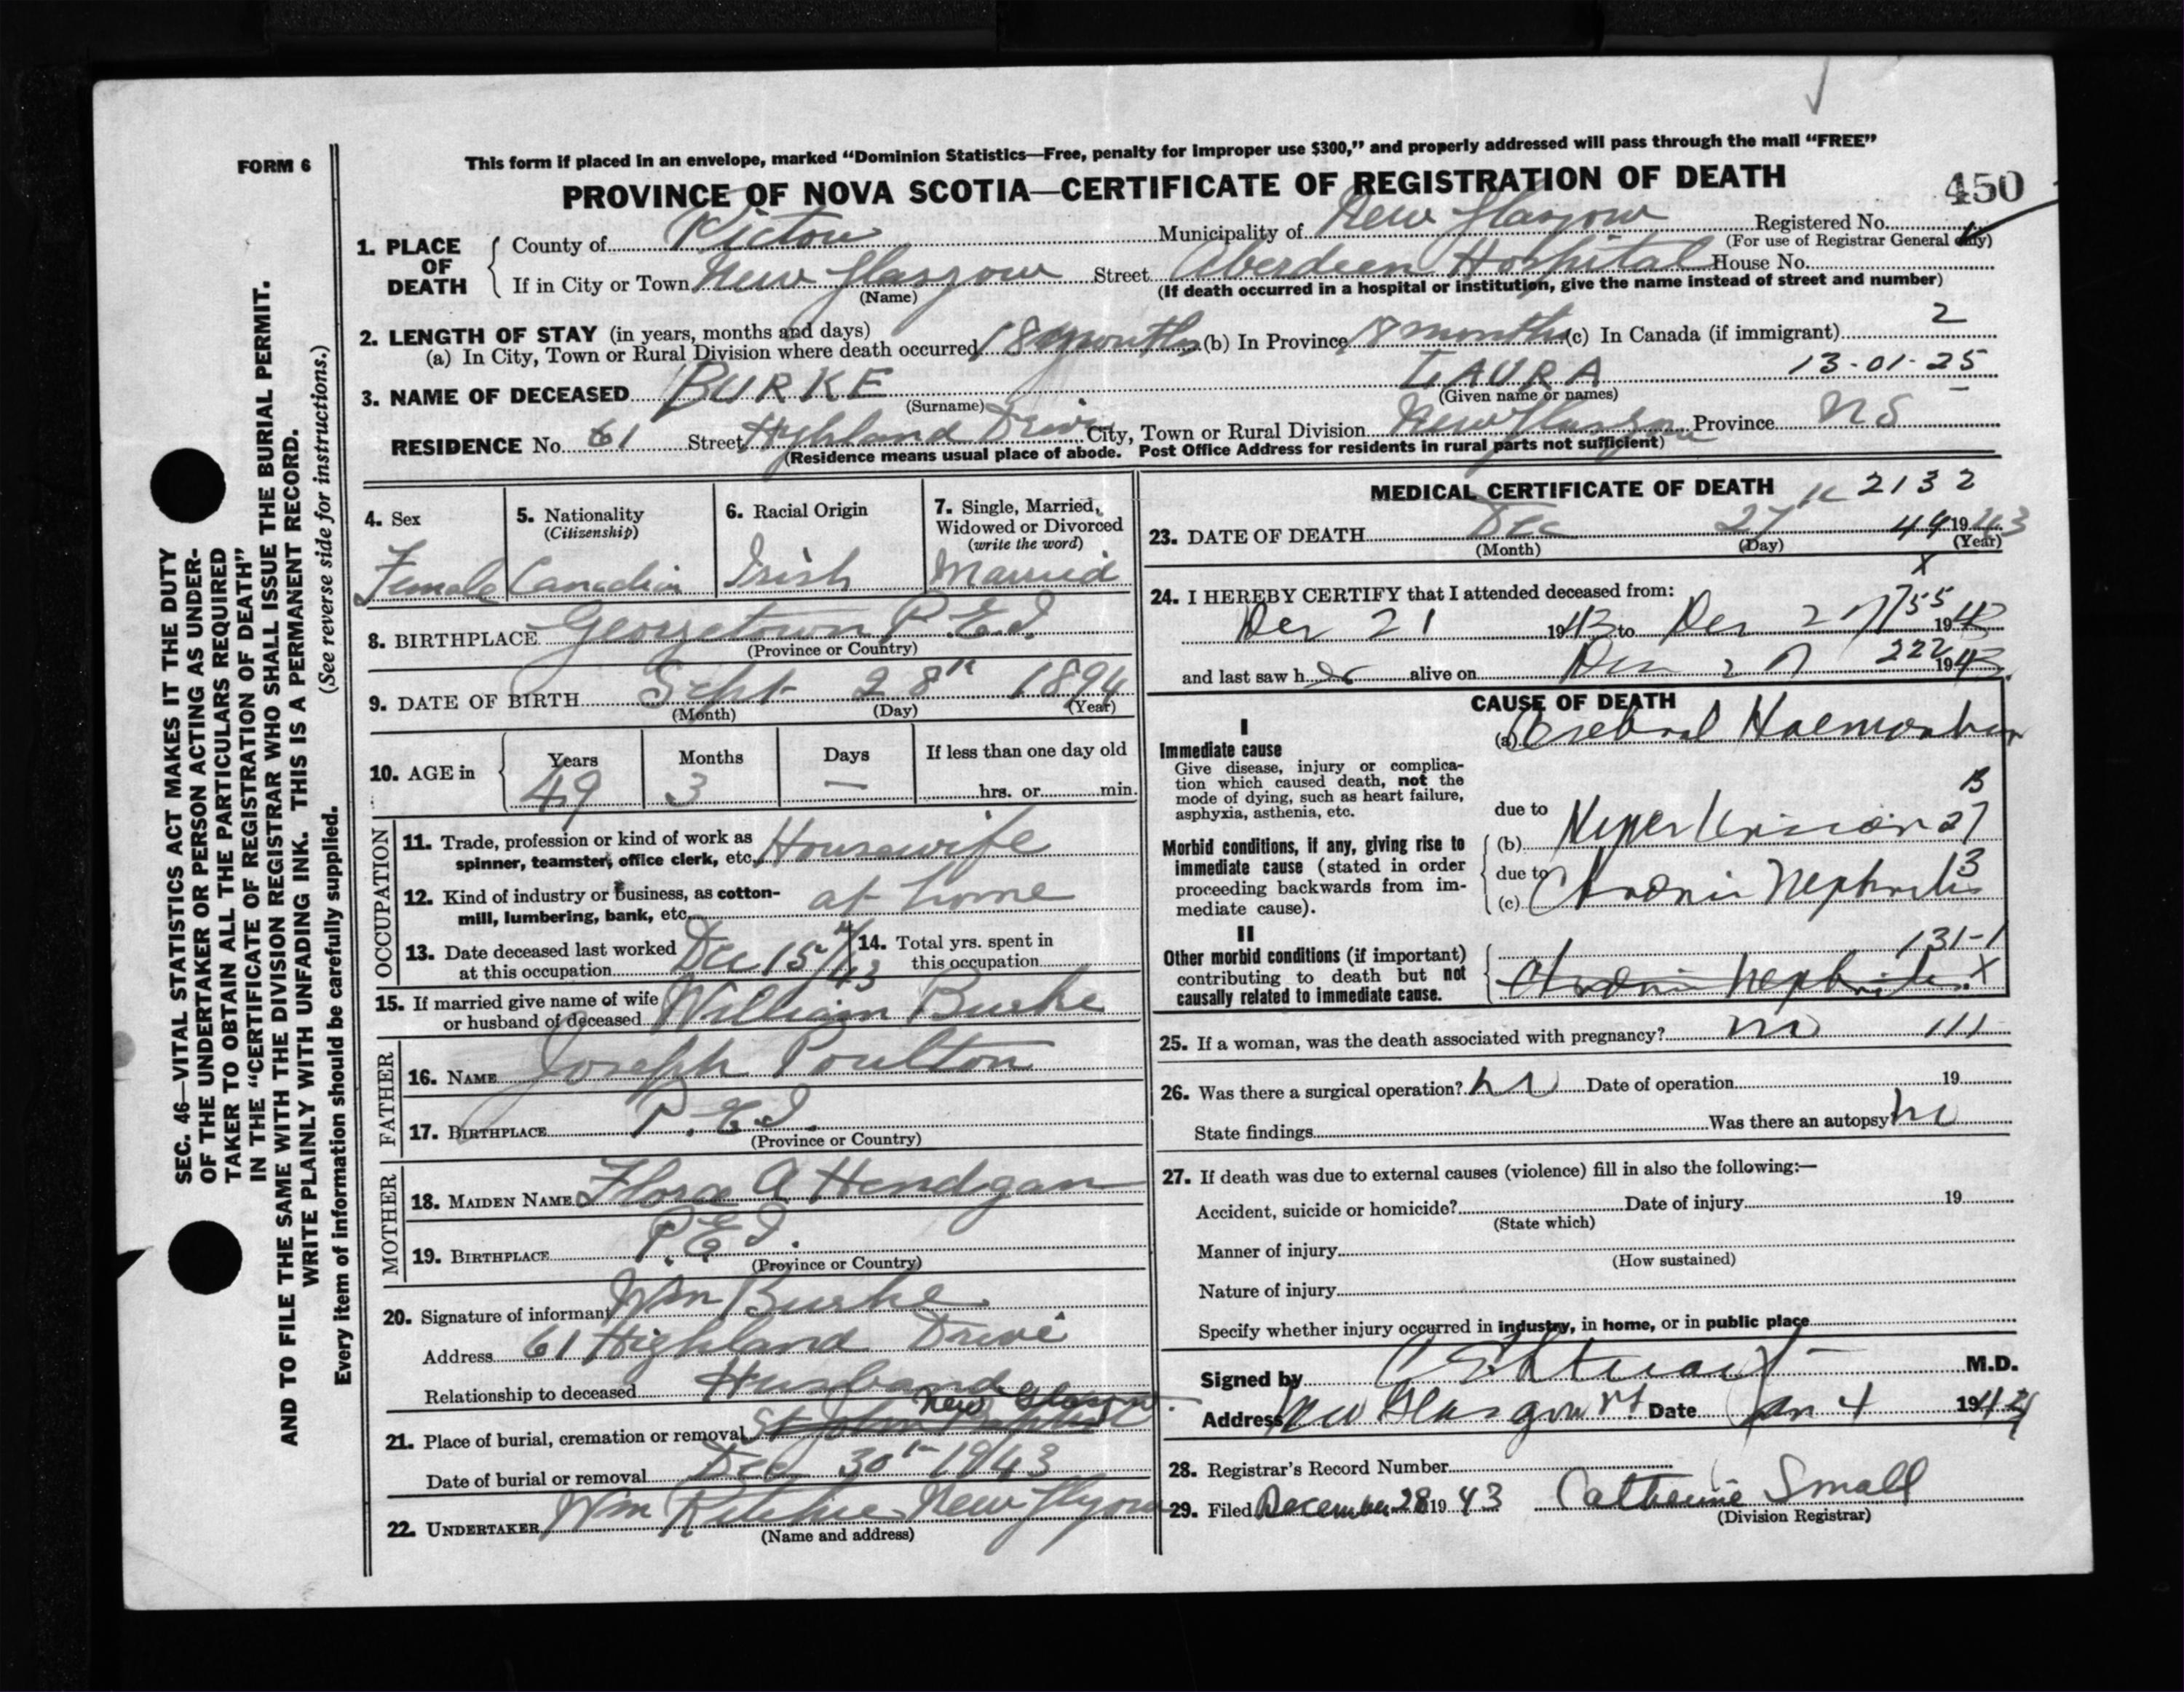 FORM 6
This form if placed in an envelope, marked “Dominion Statistics—Free, penalty for improper use $300,” and properly addressed will pass through the mail “FREE”
PROVINCE OF NOVA SCOTIA—CERTIFICATE OF REGISTRATION OF DEATH
450
1. PLACE OF DEATH
County of Pictou Municipality of New Glasgow Registered No.
(For use of Registrar General only)
If in City or Town New Glasgow Street Aberdeen Hospital House No.
(Name) (If death occurred in a hospital or institution, give the name instead of street and number)
2. LENGTH OF STAY (in years, months and days)
(a) In City, Town or Rural Division where death occurred 18 months (b) In Province 18 months (c) In Canada (if immigrant) 2
13-01-25
3. NAME OF DECEASED BURKE LAURA
(Surname) (Given name or names)
RESIDENCE No. 61 Street Highland Drive City, Town or Rural Division New Glasgow Province NS
(Residence means usual place of abode. Post Office Address for residents in rural parts not sufficient)
4. Sex Female
5. Nationality (Citizenship) Canadian
6. Racial Origin Irish
7. Single, Married, Widowed or Divorced (write the word) Married
8. BIRTHPLACE Georgetown P.E.I.
(Province or Country)
9. DATE OF BIRTH Sept 28th 1894
(Month) (Day) (Year)
10. AGE in Years 49 Months 3 Days — If less than one day old hrs. or min.
OCCUPATION
11. Trade, profession or kind of work as spinner, teamster, office clerk, etc. Housewife
12. Kind of industry or business, as cotton-mill, lumbering, bank, etc. at home
13. Date deceased last worked at this occupation Dec 15th/43
14. Total yrs. spent in this occupation
15. If married give name of wife or husband of deceased William Burke
FATHER
16. NAME Joseph Poulton
17. BIRTHPLACE P.E.I.
(Province or Country)
MOTHER
18. MAIDEN NAME Flora A Hendigan
19. BIRTHPLACE P.E.I.
(Province or Country)
20. Signature of informant Wm Burke
Address 61 Highland Drive
Relationship to deceased Husband
21. Place of burial, cremation or removal St John Baptist New Glasgow
Date of burial or removal Dec 30th 1943
22. UNDERTAKER Wm Ritchie New Glasgow
(Name and address)
MEDICAL CERTIFICATE OF DEATH
2132
23. DATE OF DEATH Dec 27 49 1943
(Month) (Day) (Year)
X
24. I HEREBY CERTIFY that I attended deceased from:
Dec 21 1943 to Dec 27 1943
755
and last saw her alive on Dec 27 1943
222
CAUSE OF DEATH
I
Immediate cause
Give disease, injury or complication which caused death, not the mode of dying, such as heart failure, asphyxia, asthenia, etc.
(a) Cerebral Haemorrhage
due to
B
Morbid conditions, if any, giving rise to immediate cause (stated in order proceeding backwards from immediate cause).
(b) Hypertension 27
due to 13
(c) Chronic Nephritis
II
Other morbid conditions (if important) contributing to death but not causally related to immediate cause.
131-1
Chronic Nephritis X
25. If a woman, was the death associated with pregnancy? no 111
26. Was there a surgical operation? no Date of operation 19
State findings Was there an autopsy no
27. If death was due to external causes (violence) fill in also the following:—
Accident, suicide or homicide? Date of injury 19
(State which)
Manner of injury
(How sustained)
Nature of injury
Specify whether injury occurred in industry, in home, or in public place
Signed by M.D.
Address New Glasgow Date Jan 4 1944
28. Registrar's Record Number
29. Filed December 28 1943 Catherine Small
(Division Registrar)
SEC. 46—VITAL STATISTICS ACT MAKES IT THE DUTY
OF THE UNDERTAKER OR PERSON ACTING AS UNDER-
TAKER TO OBTAIN ALL THE PARTICULARS REQUIRED
IN THE “CERTIFICATE OF REGISTRATION OF DEATH”
AND TO FILE THE SAME WITH THE DIVISION REGISTRAR WHO SHALL ISSUE THE BURIAL PERMIT.
WRITE PLAINLY WITH UNFADING INK. THIS IS A PERMANENT RECORD.
Every item of information should be carefully supplied. (See reverse side for instructions.)